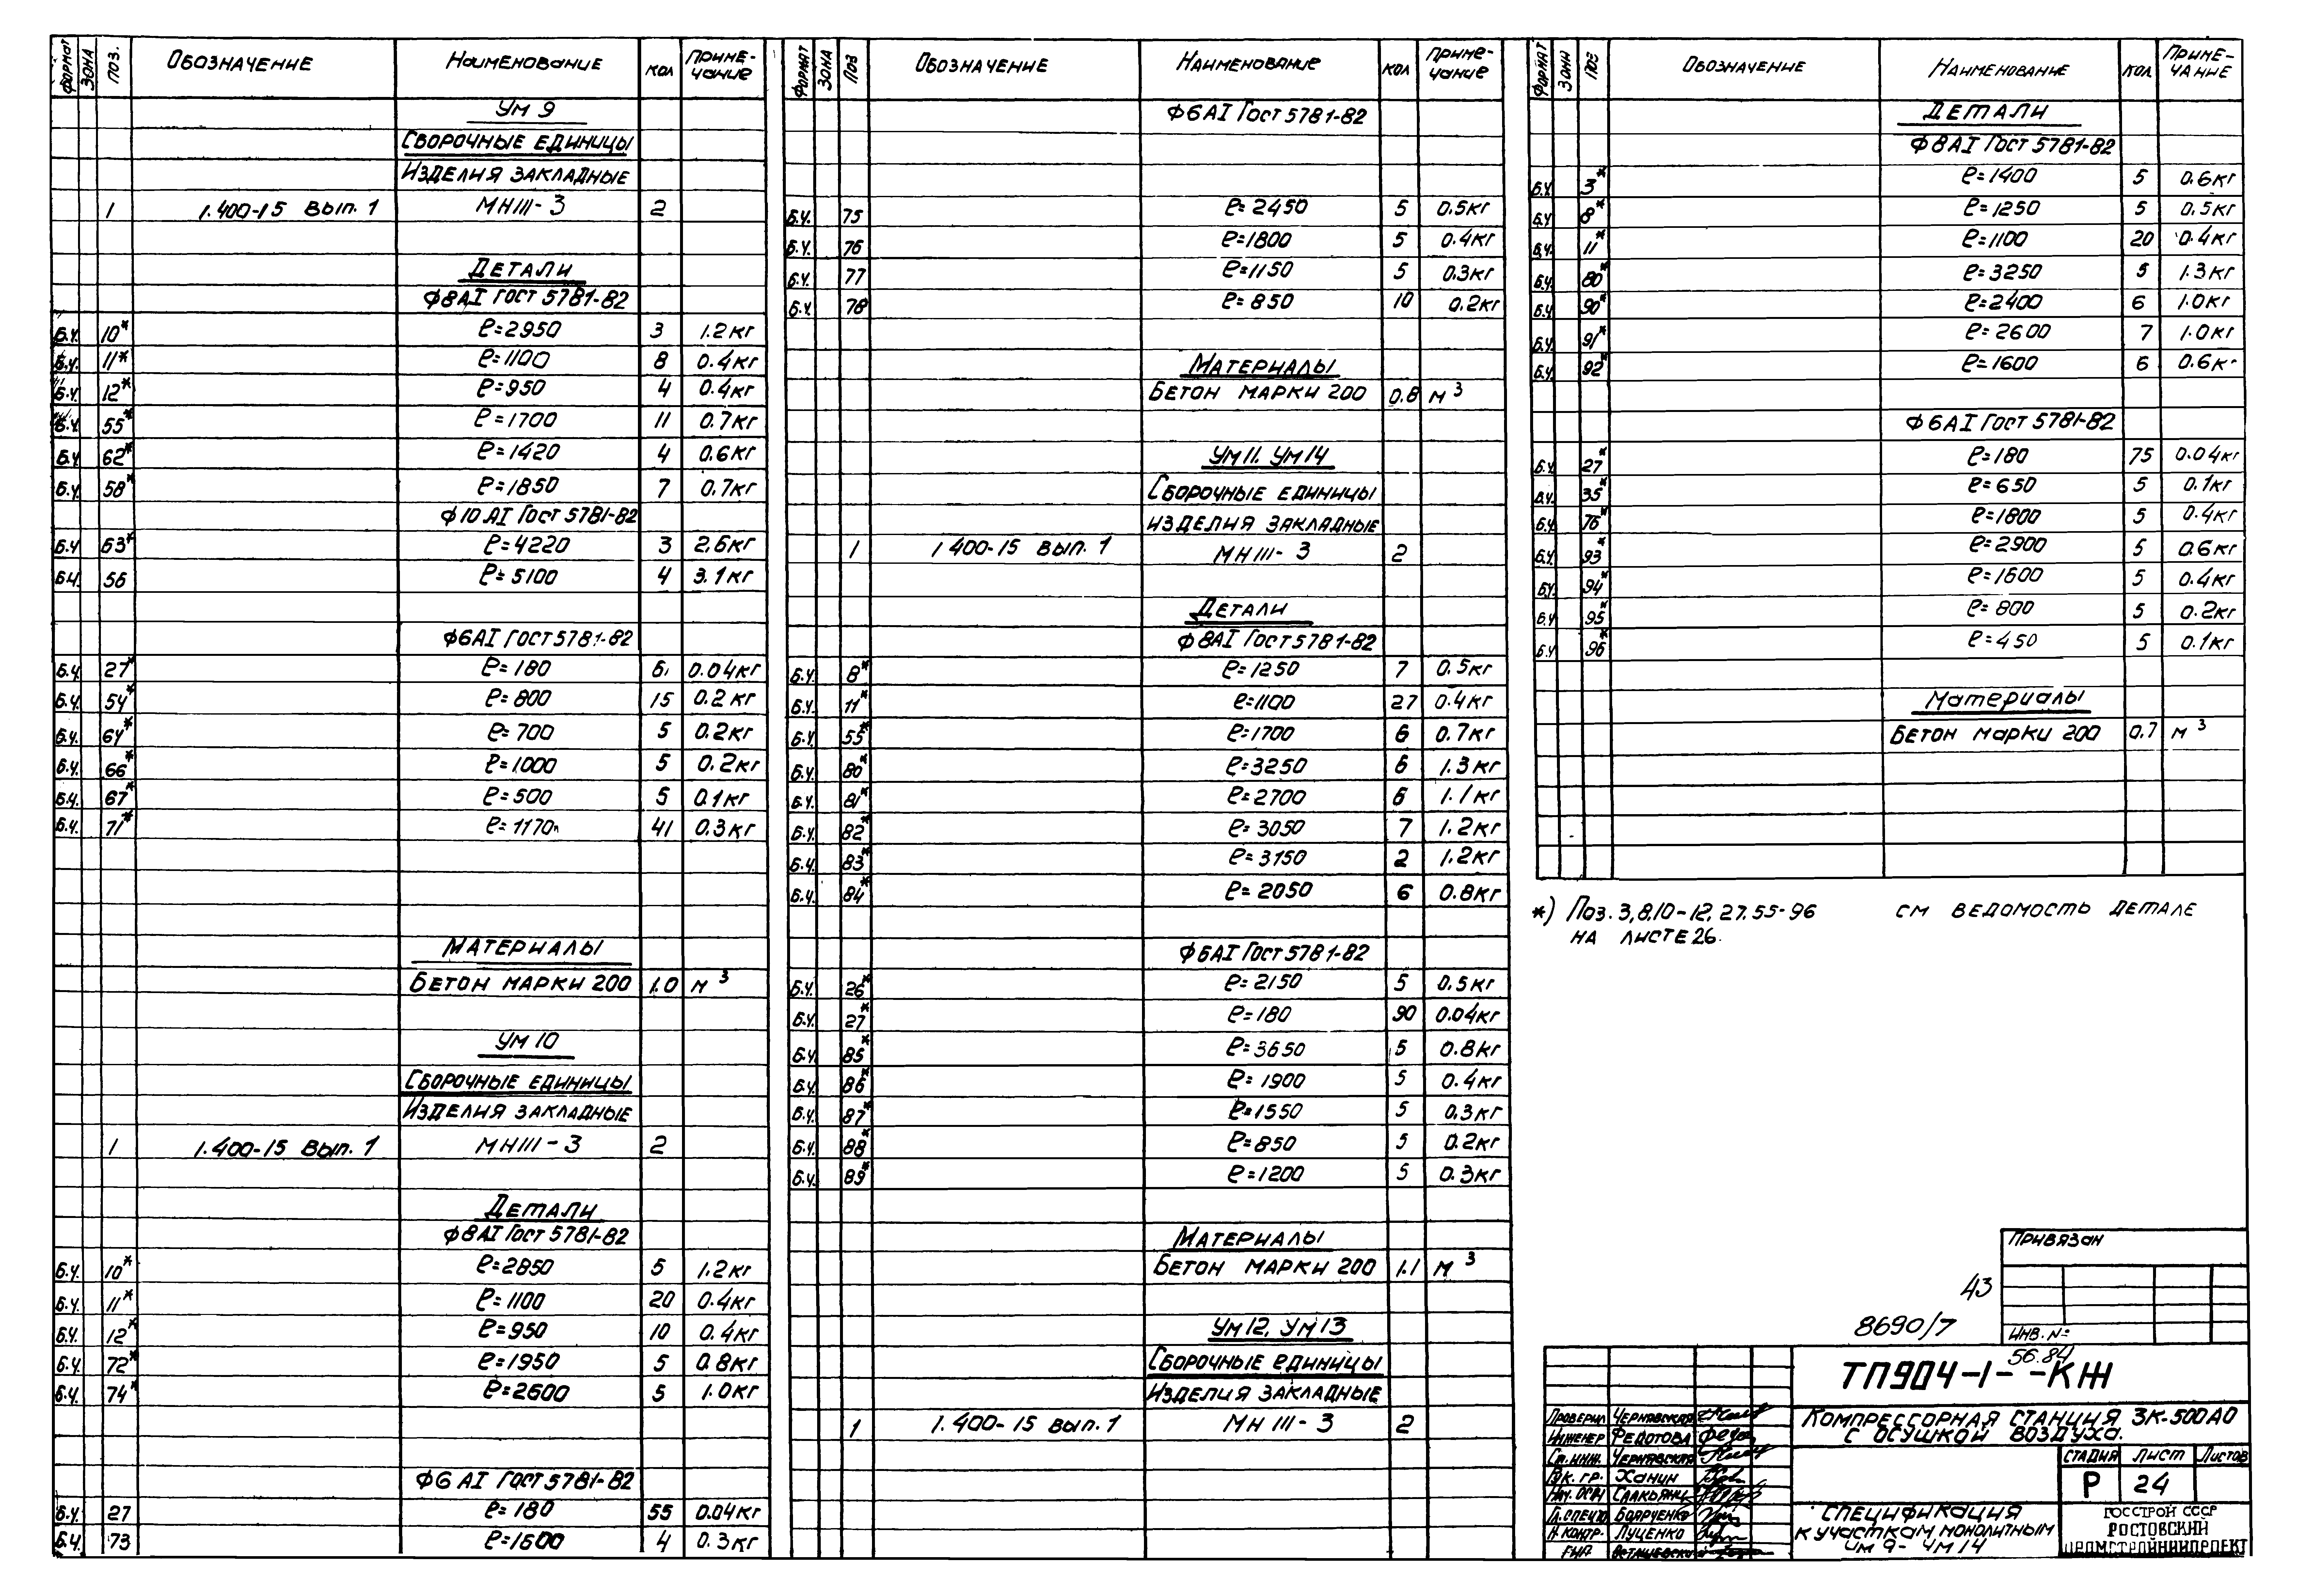 Формат Зона Поз. Обозначение Наименование Кол Примечание
Ум 9
Сборочные единицы
Изделия закладные
1 1.400-15 Вып. 1 МН111-3 2
Детали
Ф8АI Гост 5781-82
Б.Ч. 10* ℓ=2950 3 1.2кг
Б.Ч. 11* ℓ=1100 8 0.4кг
Б.Ч. 12* ℓ=950 4 0.4кг
Б.Ч. 55* ℓ=1700 11 0.7кг
Б.Ч. 62* ℓ=1420 4 0.6кг
Б.Ч. 58* ℓ=1850 7 0.7кг
Ф10АI Гост 5781-82
Б.Ч. 63* ℓ=4220 3 2.6кг
Б.Ч. 56 ℓ=5100 4 3.1кг
Ф6АI Гост 5781-82
Б.Ч. 27* ℓ=180 61 0.04кг
Б.Ч. 54* ℓ=800 15 0.2кг
Б.Ч. 64* ℓ=700 5 0.2кг
Б.Ч. 66* ℓ=1000 5 0.2кг
Б.Ч. 67* ℓ=500 5 0.1кг
Б.Ч. 71* ℓ=1170 41 0.3кг
Материалы
Бетон марки 200 1.0 м³
Ум 10
Сборочные единицы
Изделия закладные
1 1.400-15 Вып. 1 МН111-3 2
Детали
Ф8АI Гост 5781-82
Б.Ч. 10* ℓ=2850 5 1.2кг
Б.Ч. 11* ℓ=1100 20 0.4кг
Б.Ч. 12* ℓ=950 10 0.4кг
Б.Ч. 72* ℓ=1950 5 0.8кг
Б.Ч. 74* ℓ=2600 5 1.0кг
Ф6 АI Гост 5781-82
Б.Ч. 27 ℓ=180 55 0.04кг
Б.Ч. 73 ℓ=1600 4 0.3кг
Формат Зона Поз Обозначение Наименование Кол Примечание
Ф6АI Гост 5781-82
Б.Ч. 75 ℓ=2450 5 0.5кг
Б.Ч. 76 ℓ=1800 5 0.4кг
Б.Ч. 77 ℓ=1150 5 0.3кг
Б.Ч. 78 ℓ=850 10 0.2кг
Материалы
Бетон марки 200 0.8 м³
Ум11. Ум14
Сборочные единицы
изделия закладные
1 1400-15 Вып. 1 МН111-3 2
Детали
Ф8АI Гост 5781-82
Б.Ч. 8* ℓ=1250 7 0.5кг
Б.Ч. 11* ℓ=1100 27 0.4кг
Б.Ч. 55* ℓ=1700 6 0.7кг
Б.Ч. 80* ℓ=3250 6 1.3кг
Б.Ч. 81* ℓ=2700 6 1.1кг
Б.Ч. 82* ℓ=3050 7 1.2кг
Б.Ч. 83* ℓ=3150 2 1.2кг
Б.Ч. 84* ℓ=2050 6 0.8кг
Ф6АI Гост 5781-82
Б.Ч. 26* ℓ=2150 5 0.5кг
Б.Ч. 27* ℓ=180 90 0.04кг
Б.Ч. 85* ℓ=3650 5 0.8кг
Б.Ч. 86* ℓ=1900 5 0.4кг
Б.Ч. 87* ℓ=1550 5 0.3кг
Б.Ч. 88* ℓ=850 5 0.2кг
Б.Ч. 89* ℓ=1200 5 0.3кг
Материалы
Бетон марки 200 1.1 м³
Ум12, Ум13
Сборочные единицы
Изделия закладные
1 1.400-15 Вып. 1 МН 111-3 2
Формат Зона Поз Обозначение Наименование Кол Примечание
Детали
Ф8АI Гост 5781-82
Б.Ч. 3* ℓ=1400 5 0.6кг
Б.Ч. 8* ℓ=1250 5 0.5кг
Б.Ч. 11* ℓ=1100 20 0.4кг
Б.Ч. 80* ℓ=3250 5 1.3кг
Б.Ч. 90* ℓ=2400 6 1.0кг
Б.Ч. 91* ℓ=2600 7 1.0кг
Б.Ч. 92* ℓ=1600 6 0.6кг
Ф6АI Гост 5781-82
Б.Ч. 27* ℓ=180 75 0.04кг
Б.Ч. 35* ℓ=650 5 0.1кг
Б.Ч. 76* ℓ=1800 5 0.4кг
Б.Ч. 93* ℓ=2900 5 0.6кг
Б.Ч. 94* ℓ=1600 5 0.4кг
Б.Ч. 95* ℓ=800 5 0.2кг
Б.Ч. 96* ℓ=450 5 0.1кг
Материалы
Бетон марки 200 0.7 м³
*) Поз. 3,8,10-12, 27, 55-96 см ведомость детале
на листе 26.
Привязан
43
8690/7
Инв. №
56.84
ТП904-1- -КЖ
Компрессорная станция 3К-500АО
с осушкой воздуха.
Проверил Чернявская
Инженер Федотова
Ст. инж. Чернявская
Рук. гр. Ханин
Нач. ОСП
Гл. спец Боярченко
Н. контр. Луценко
Стадия Лист Листов
Р 24
Спецификация
к участкам монолитным
Ум 9- Ум 14
Госстрой СССР
Ростовский
Промстройниипроект